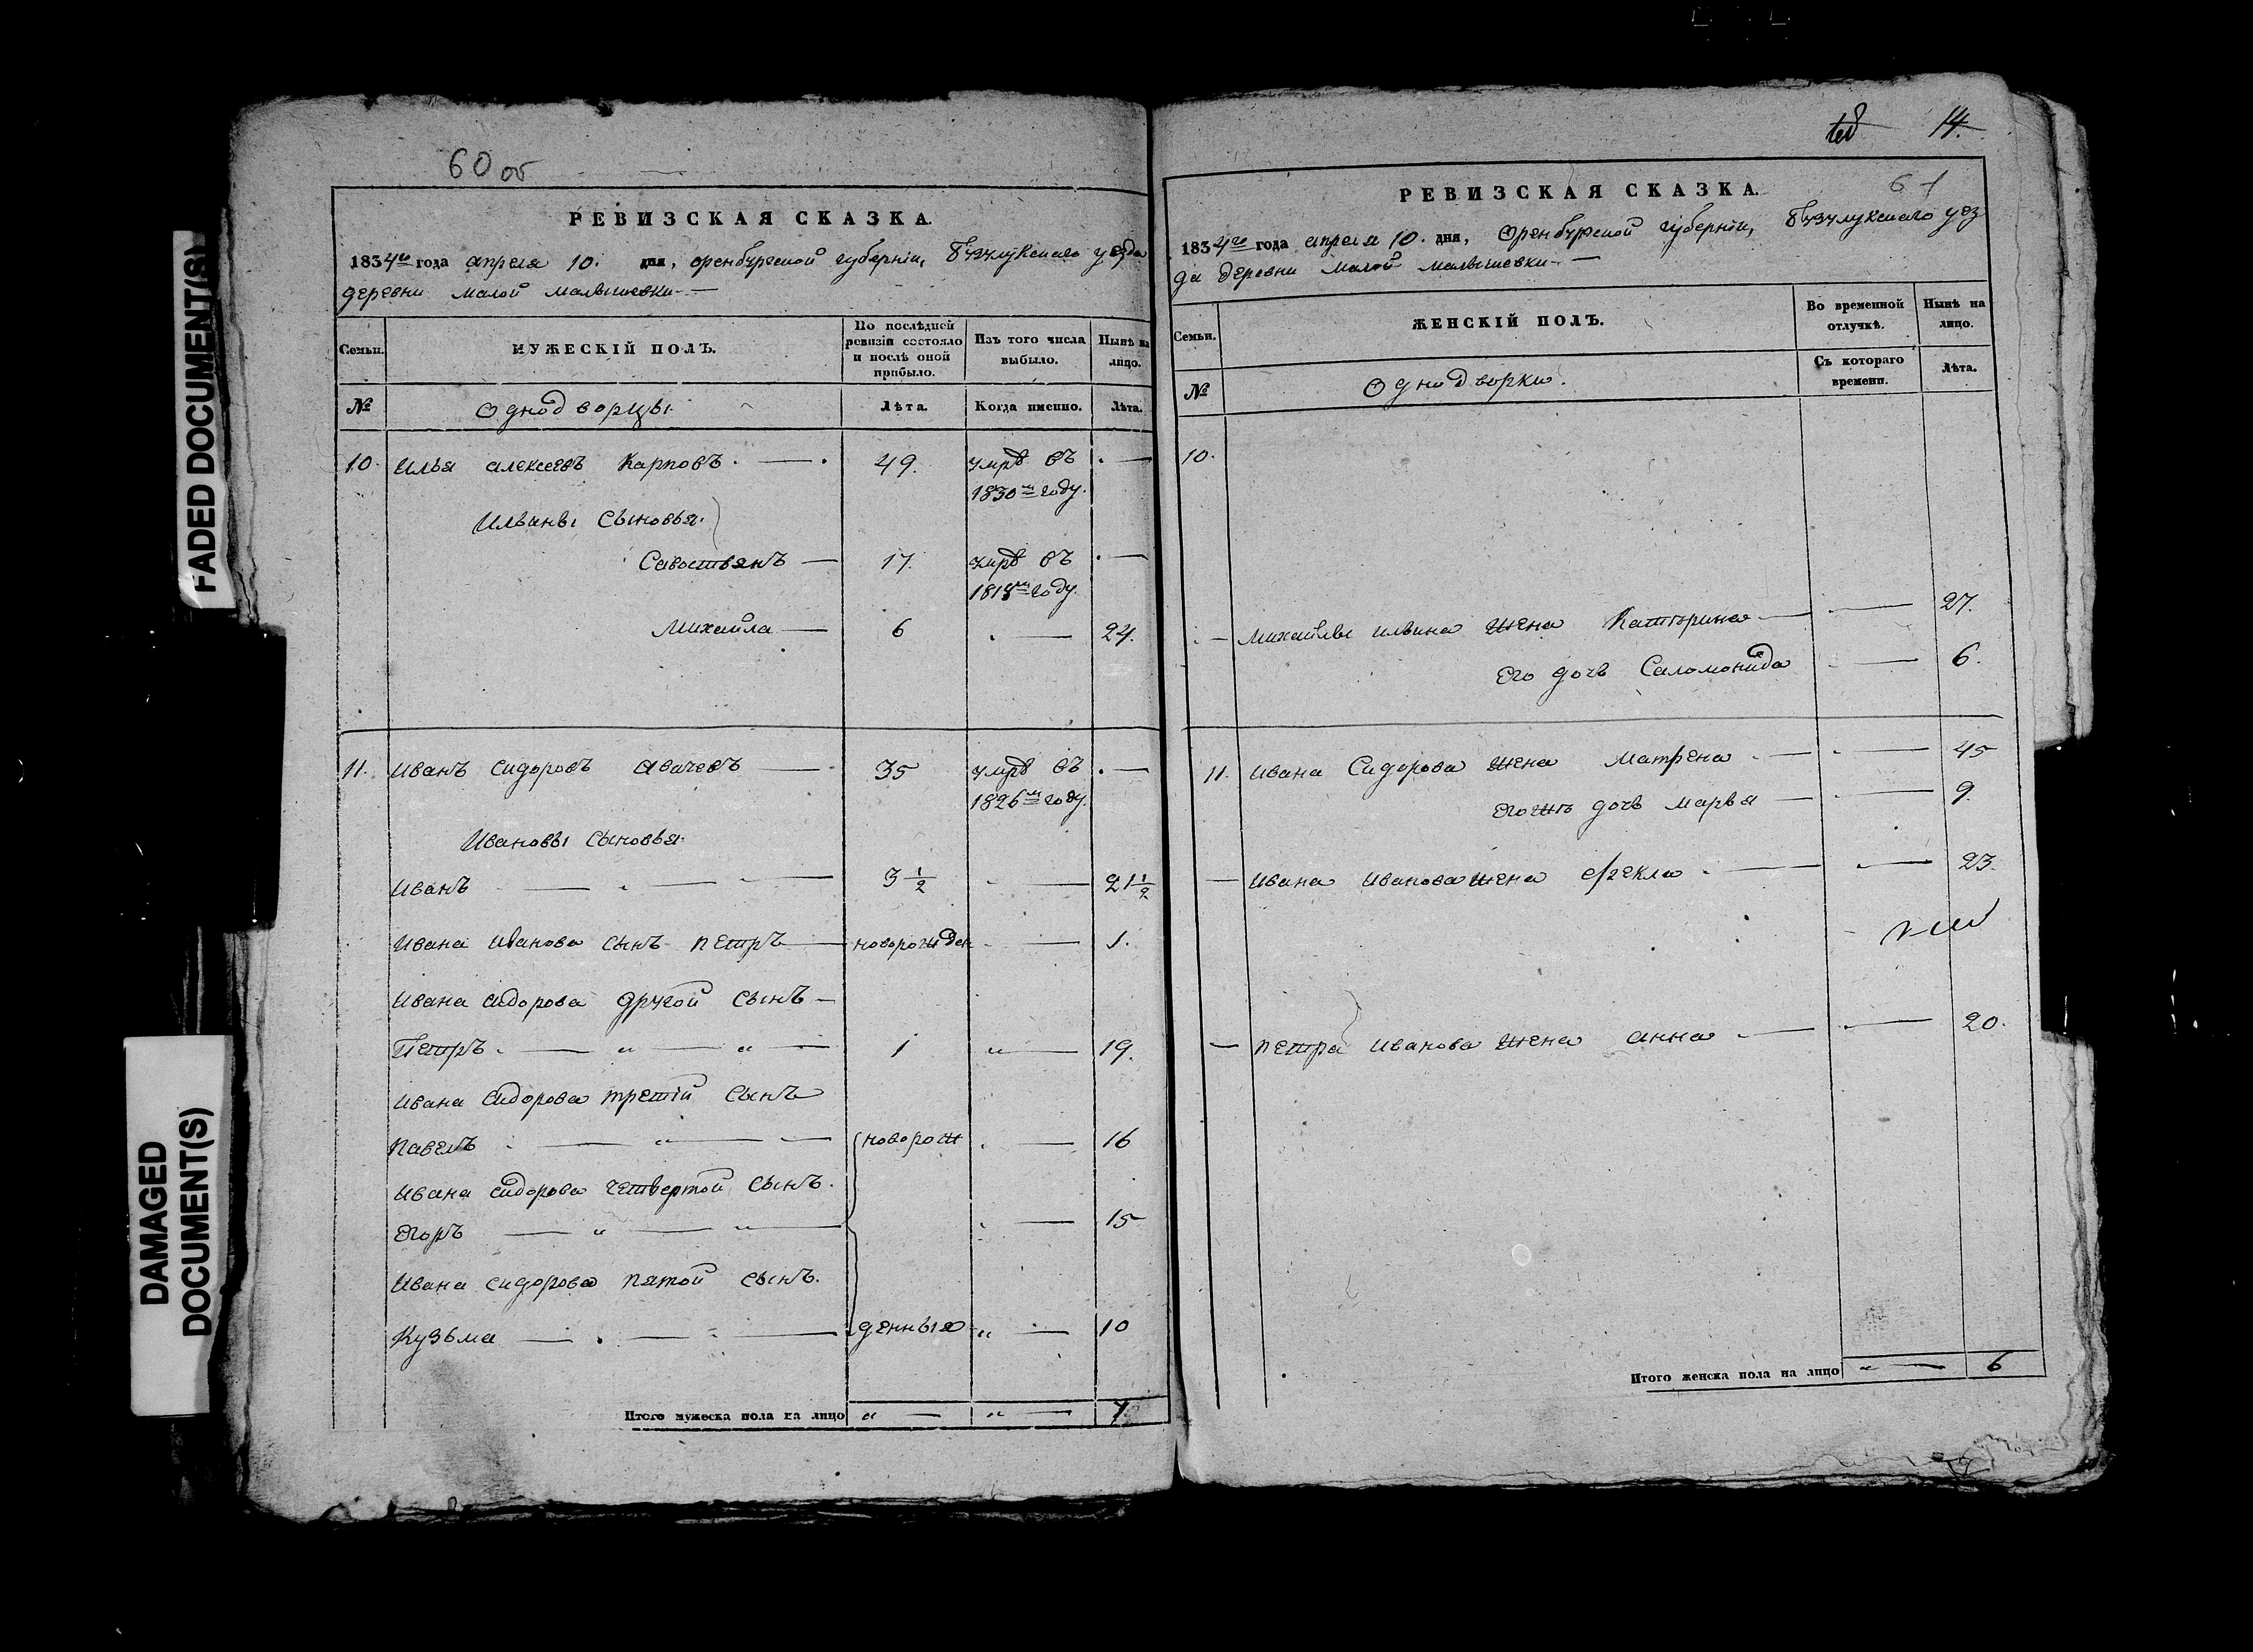 FADED DOCUMENT(S)
DAMAGED
DOCUMENT(S)
60 об
РЕВИЗСКАЯ СКАЗКА.
1834го года апреля 10. дня, оренбургской губернiи, Бузулукскаго уезда
деревни малой малышевки
Семьи. МУЖЕСКIЙ ПОЛЪ. По послѣдней ревизiи состояло и послѣ оной прибыло. Изъ того числа выбыло. Нынѣ на лицо.
№ Однодворцы. Лѣта. Когда именно. Лѣта.
10. Илья алексеевъ Карповъ 49. умре въ
1830м году.
Ильины сыновья.
Савостьянъ 17. умре въ
1818м году.
Михаила 6 24.
11. Иванъ сидоровъ 35 умре въ
1826м году.
Ивановы сыновья.
Иванъ 3 1/2 21 1/2
Ивана иванова сынъ петръ новорожден 1.
Ивана сидорова другой сынъ
Петръ 1 19.
Ивана сидорова третiй сынъ
Павелъ новорож 16
Ивана сидорова четвертой сынъ.
Егоръ 15
Ивана сидорова пятой сынъ.
Кузьма денныя 10
Итого мужеска пола на лицо 7
14.
61
РЕВИЗСКАЯ СКАЗКА.
1834го года апреля 10. дня, Оренбургской губернiи, бузулукскаго уез
да деревни малой малышевки
Семьи. ЖЕНСКIЙ ПОЛЪ. Во временной отлучкѣ. Нынѣ на лицо.
№ Однодворки. Съ котораго времени. Лѣта.
10.
Михайлы ильина жена Катерина 27.
его дочь Саломонида 6.
11. Ивана Сидорова жена матрена 45
его жъ дочь марья 9.
Ивана Иванова жена фекла 23.
петра Иванова жена анна 20.
Итого женска пола на лицо 6